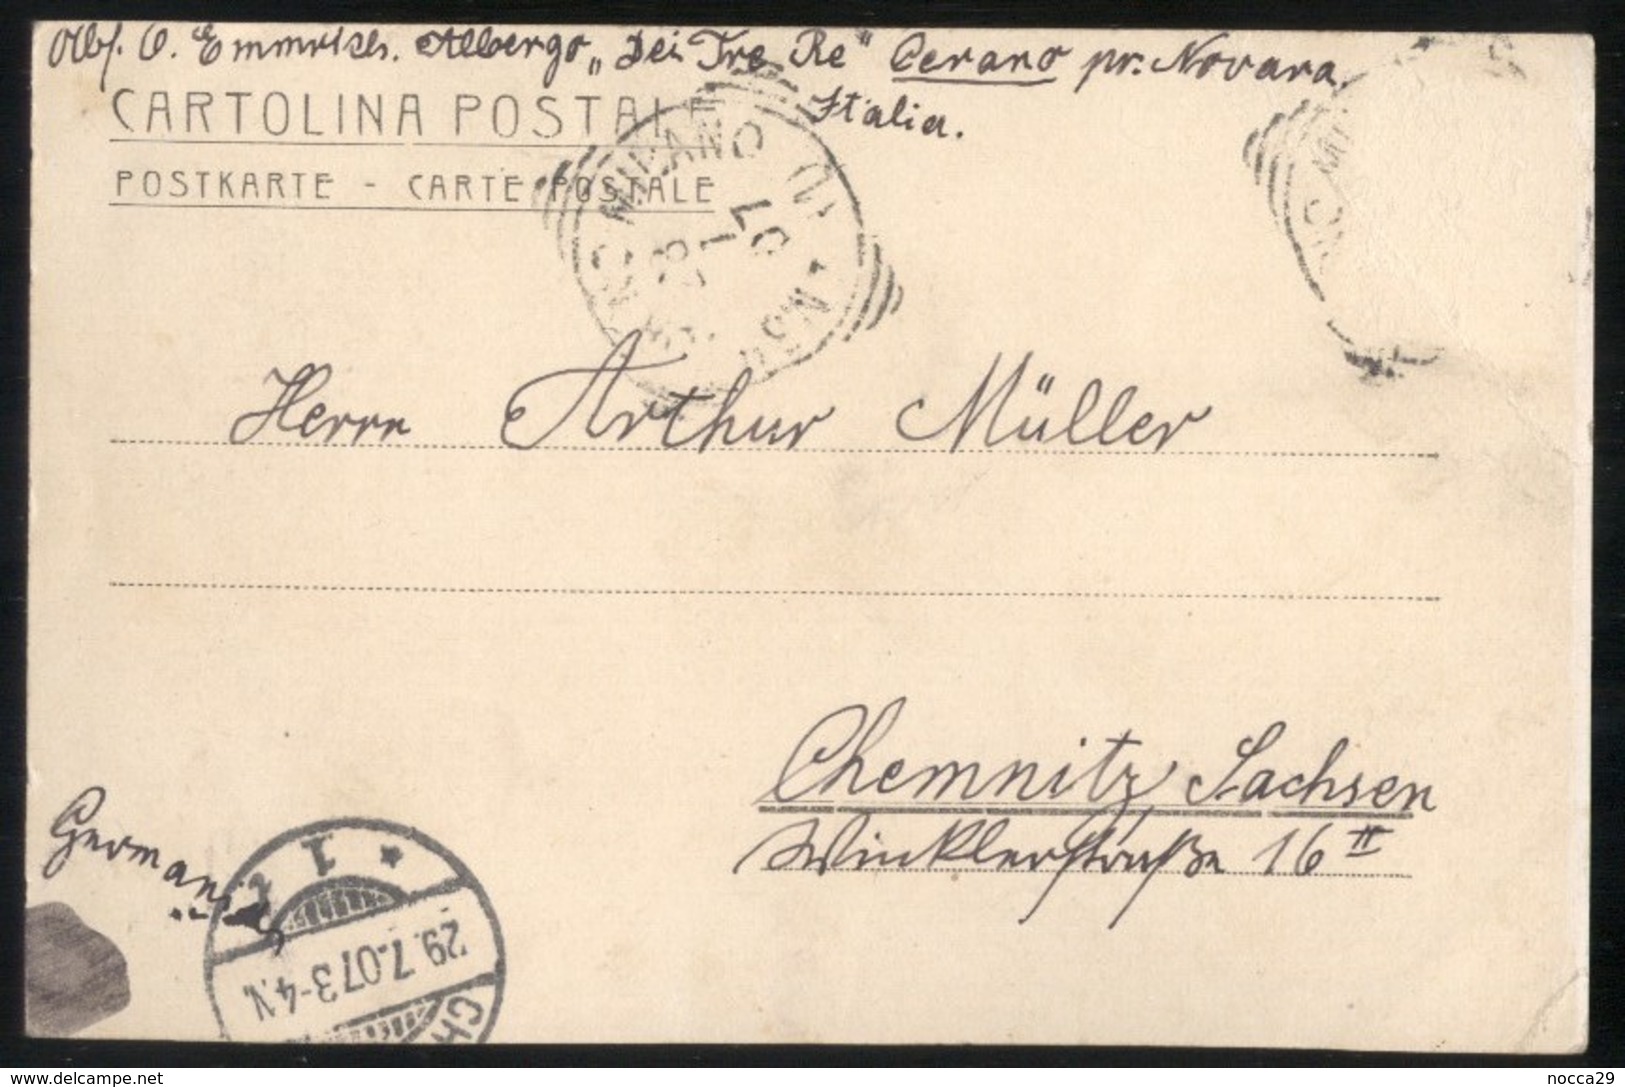 Abs. O. Emmrich. Albergo „Dei Tre Re" Cerano pr. Novara
Italia.
CARTOLINA POSTALE
POSTKARTE - CARTE POSTALE
MILANO
7 07
Herrn Arthur Müller
Chemnitz, Sachsen
Winklerstraße 16 II
Germania
1
29.7.07 3-4.N.
CH
nocca29